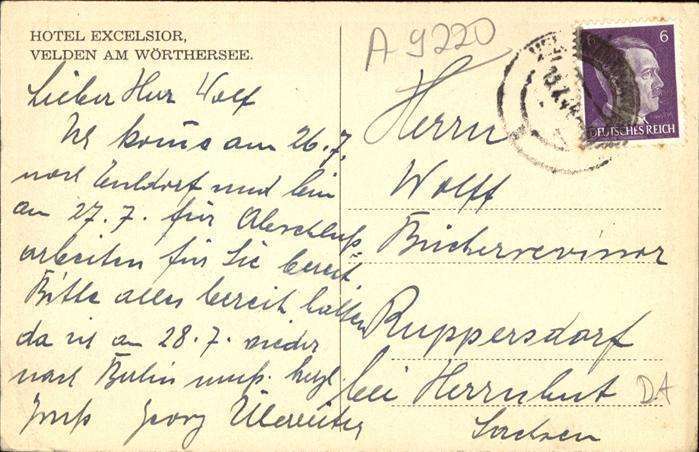 HOTEL EXCELSIOR,
VELDEN AM WÖRTHERSEE.
Lieber Herr Wolf
Ich komme am 26.7.
nach und bin
am 27.7. für Abschluß-
arbeiten für Sie bereit.
Bitte alles bereit halten
da ich am 28.7. wieder
nach Berlin muß. herzl
Gruß Georg
A 9220
6
DEUTSCHES REICH
Herrn
Wolff
Bücherrevisor
Ruppersdorf
bei Herrnhut
Sachsen
DA